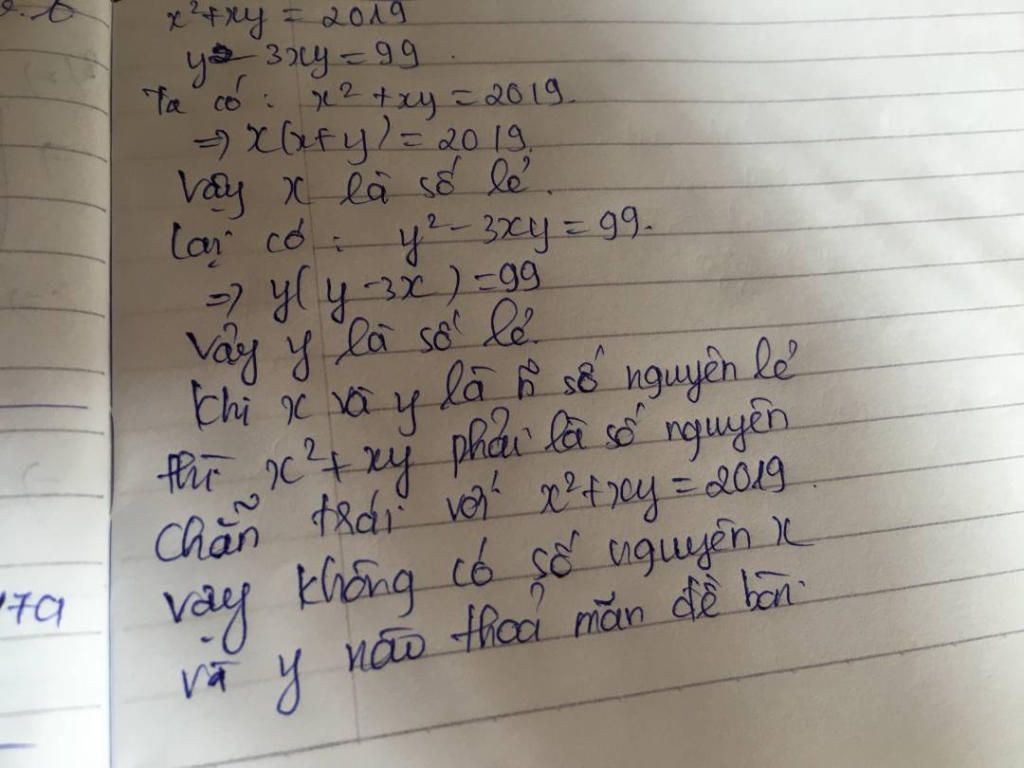 x²+xy = 2019
y - 3xy = 99.
Ta có: x² + xy = 2019.
=> x(x+y) = 2019.
Vậy x là số lẻ.
Lại có: y² - 3xy = 99.
=> y(y-3x) = 99
Vậy y là số lẻ.
Khi x và y là số nguyên lẻ
thì x² + xy phải là số nguyên
chẵn trái với x²+xy = 2019.
Vậy không có số nguyên x
và y nào thoả mãn đề bài.